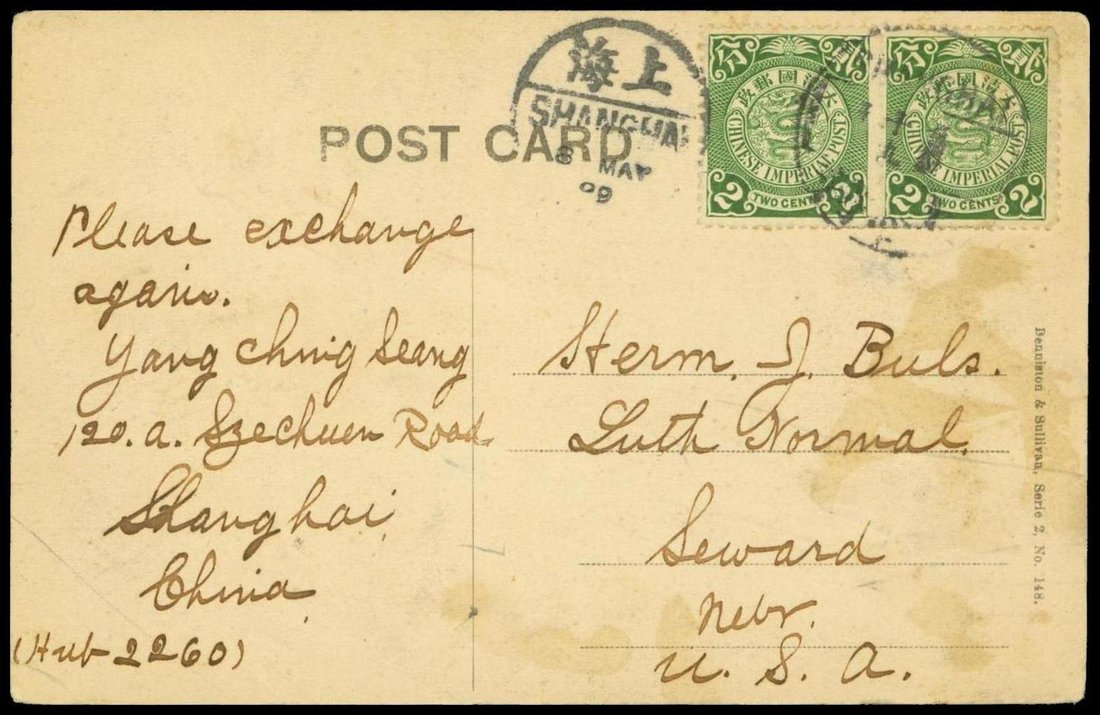 上海
SHANGHAI
8 MAY
09
POST CARD
貳 分
大清國郵政
CHINESE IMPERIAL POST
2 TWO CENTS 2
貳 分
大清國郵政
CHINESE IMPERIAL POST
2 TWO CENTS 2
Please exchange
again.
Yang Ching Seang
120.a. Szechuen Road
Shanghai
China
(Hub 2260)
Herm. J. Buls.
Luth Normal.
Seward
Nebr.
U. S. A.
Benniston & Sullivan, Serie 2, No. 148.